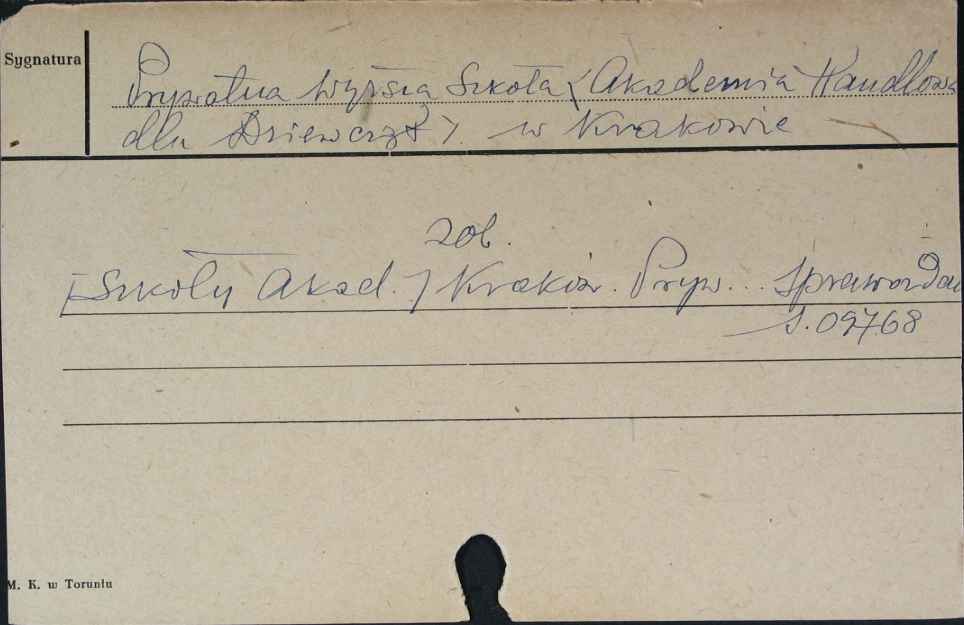 Sygnatura
Prywatna Wyższa Szkoła (Akademia Handlowa
dla Dziewcząt). w Krakowie
zob.
[Szkoły Akad.] Kraków. Pryw... Sprawozdan
S.09768
M. K. w Toruniu